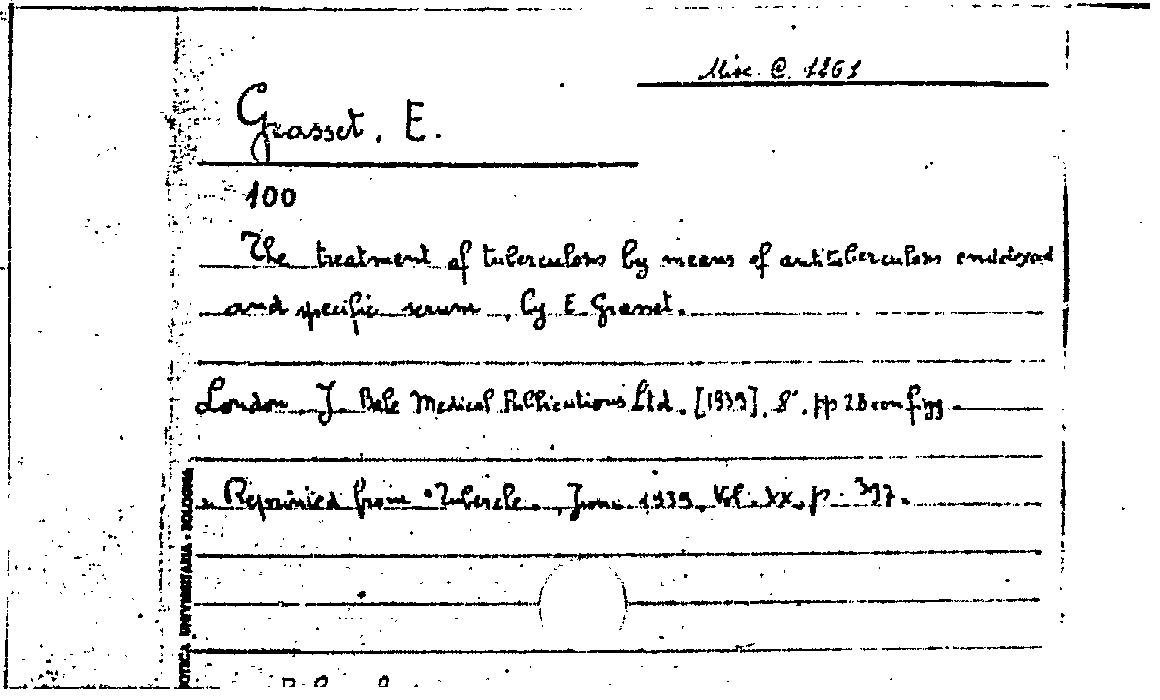 Misc. C. 1261
Grasset, E.
100
The treatment of tuberculosis by means of antituberculosis
and specific serum, by E. Grasset.
London J. Bale Medical Publications Ltd. [1939], 8°, pp 28 con figg
Reprinted from "Tubercle", June 1939, Vol. XX, p. 397.
UNIVERSITARIA - BOLOGNA